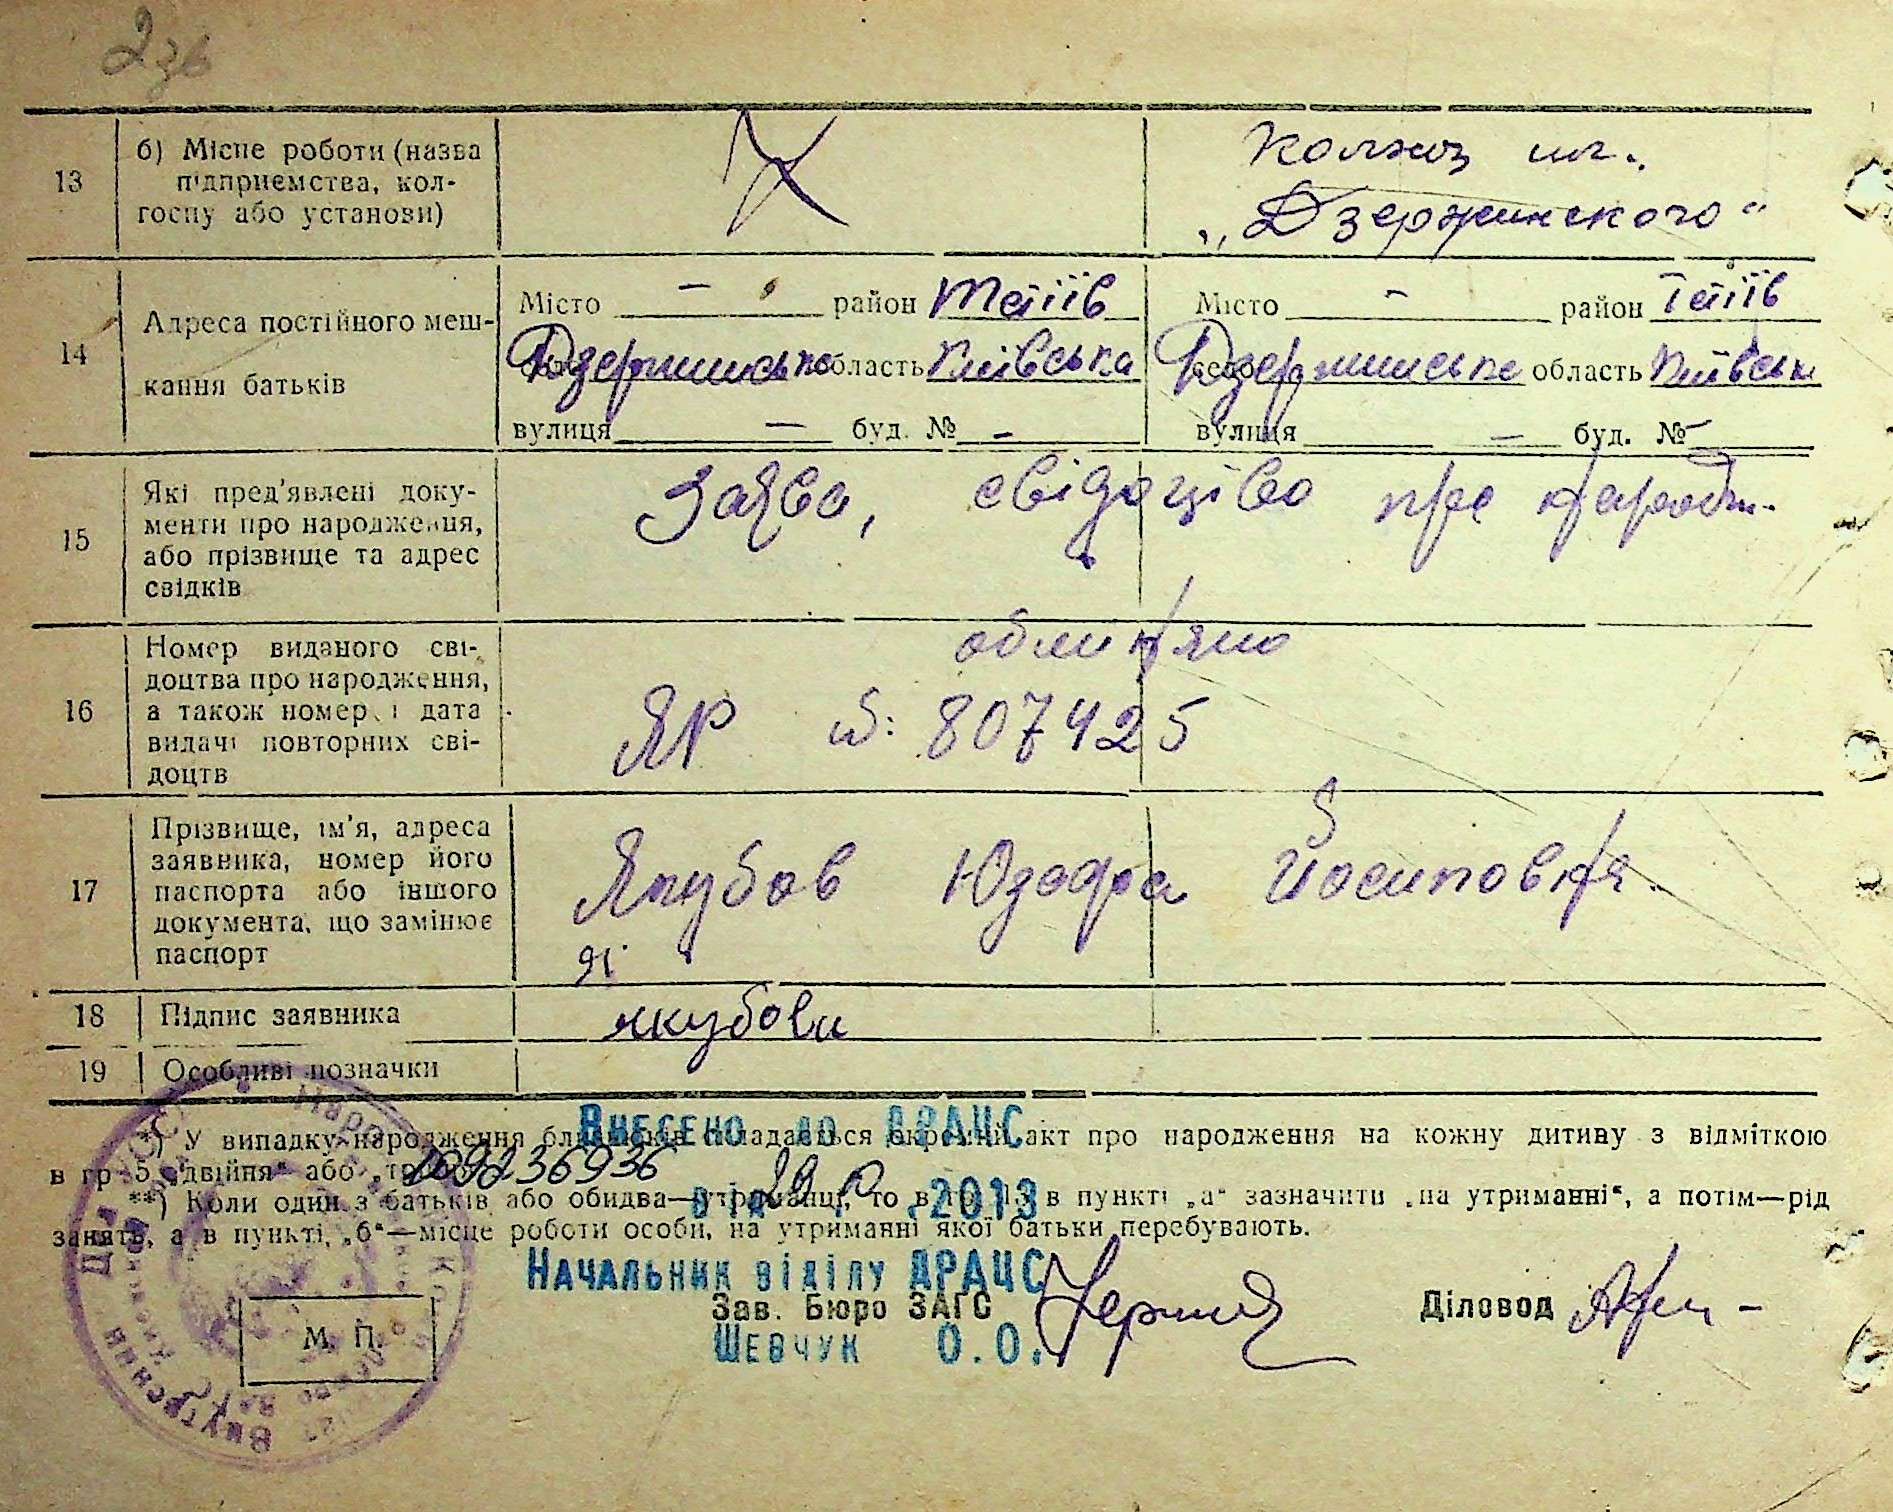 2зв
13
б) Місце роботи (назва
підприємства, кол-
госпу або установи)
Колхоз им.
„Дзержинского“
14
Адреса постійного меш-
кання батьків
Місто — район Тетіїв
Дзержинське область Київська
вулиця — буд. № —
Місто — район Тетіїв
село Дзержинське область Київськ
вулиця — буд. № —
15
Які пред'явлені доку-
менти про народження,
або прізвище та адрес
свідків
Заява, свідоцтво про народж.
16
Номер виданого сві-
доцтва про народження,
а також номер і дата
видачі повторних сві-
доцтв
обміняно
ЯР №: 807425
17
Прізвище, ім'я, адреса
заявника, номер його
паспорта або іншого
документа, що замінює
паспорт
Якубов Юзефа Йосиповна
18
Підпис заявника
Якубови
19
Особливі позначки
*) У випадку народження близнюків складається окремий акт про народження на кожну дитину з відміткою
в гр. 5 „двійня“ або
**) Коли один з батьків або обидва—утриманці, то в гр. 13 в пункті „а“ зазначити „на утриманні“, а потім—рід
занять, а в пункті „б“—місце роботи особи, на утриманні якої батьки перебувають.
Внесено до ДРАЦС
від 2013
Начальник відділу ДРАЦС
Шевчук О.О.
М. П.
Зав. Бюро ЗАГС
Діловод